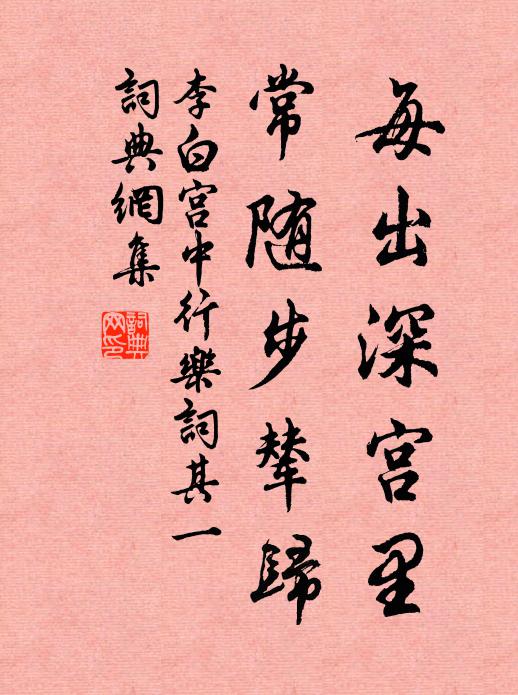 每出深宫里
常随步辇歸
李白宫中行樂詞其一
詞典網集
詞典網印